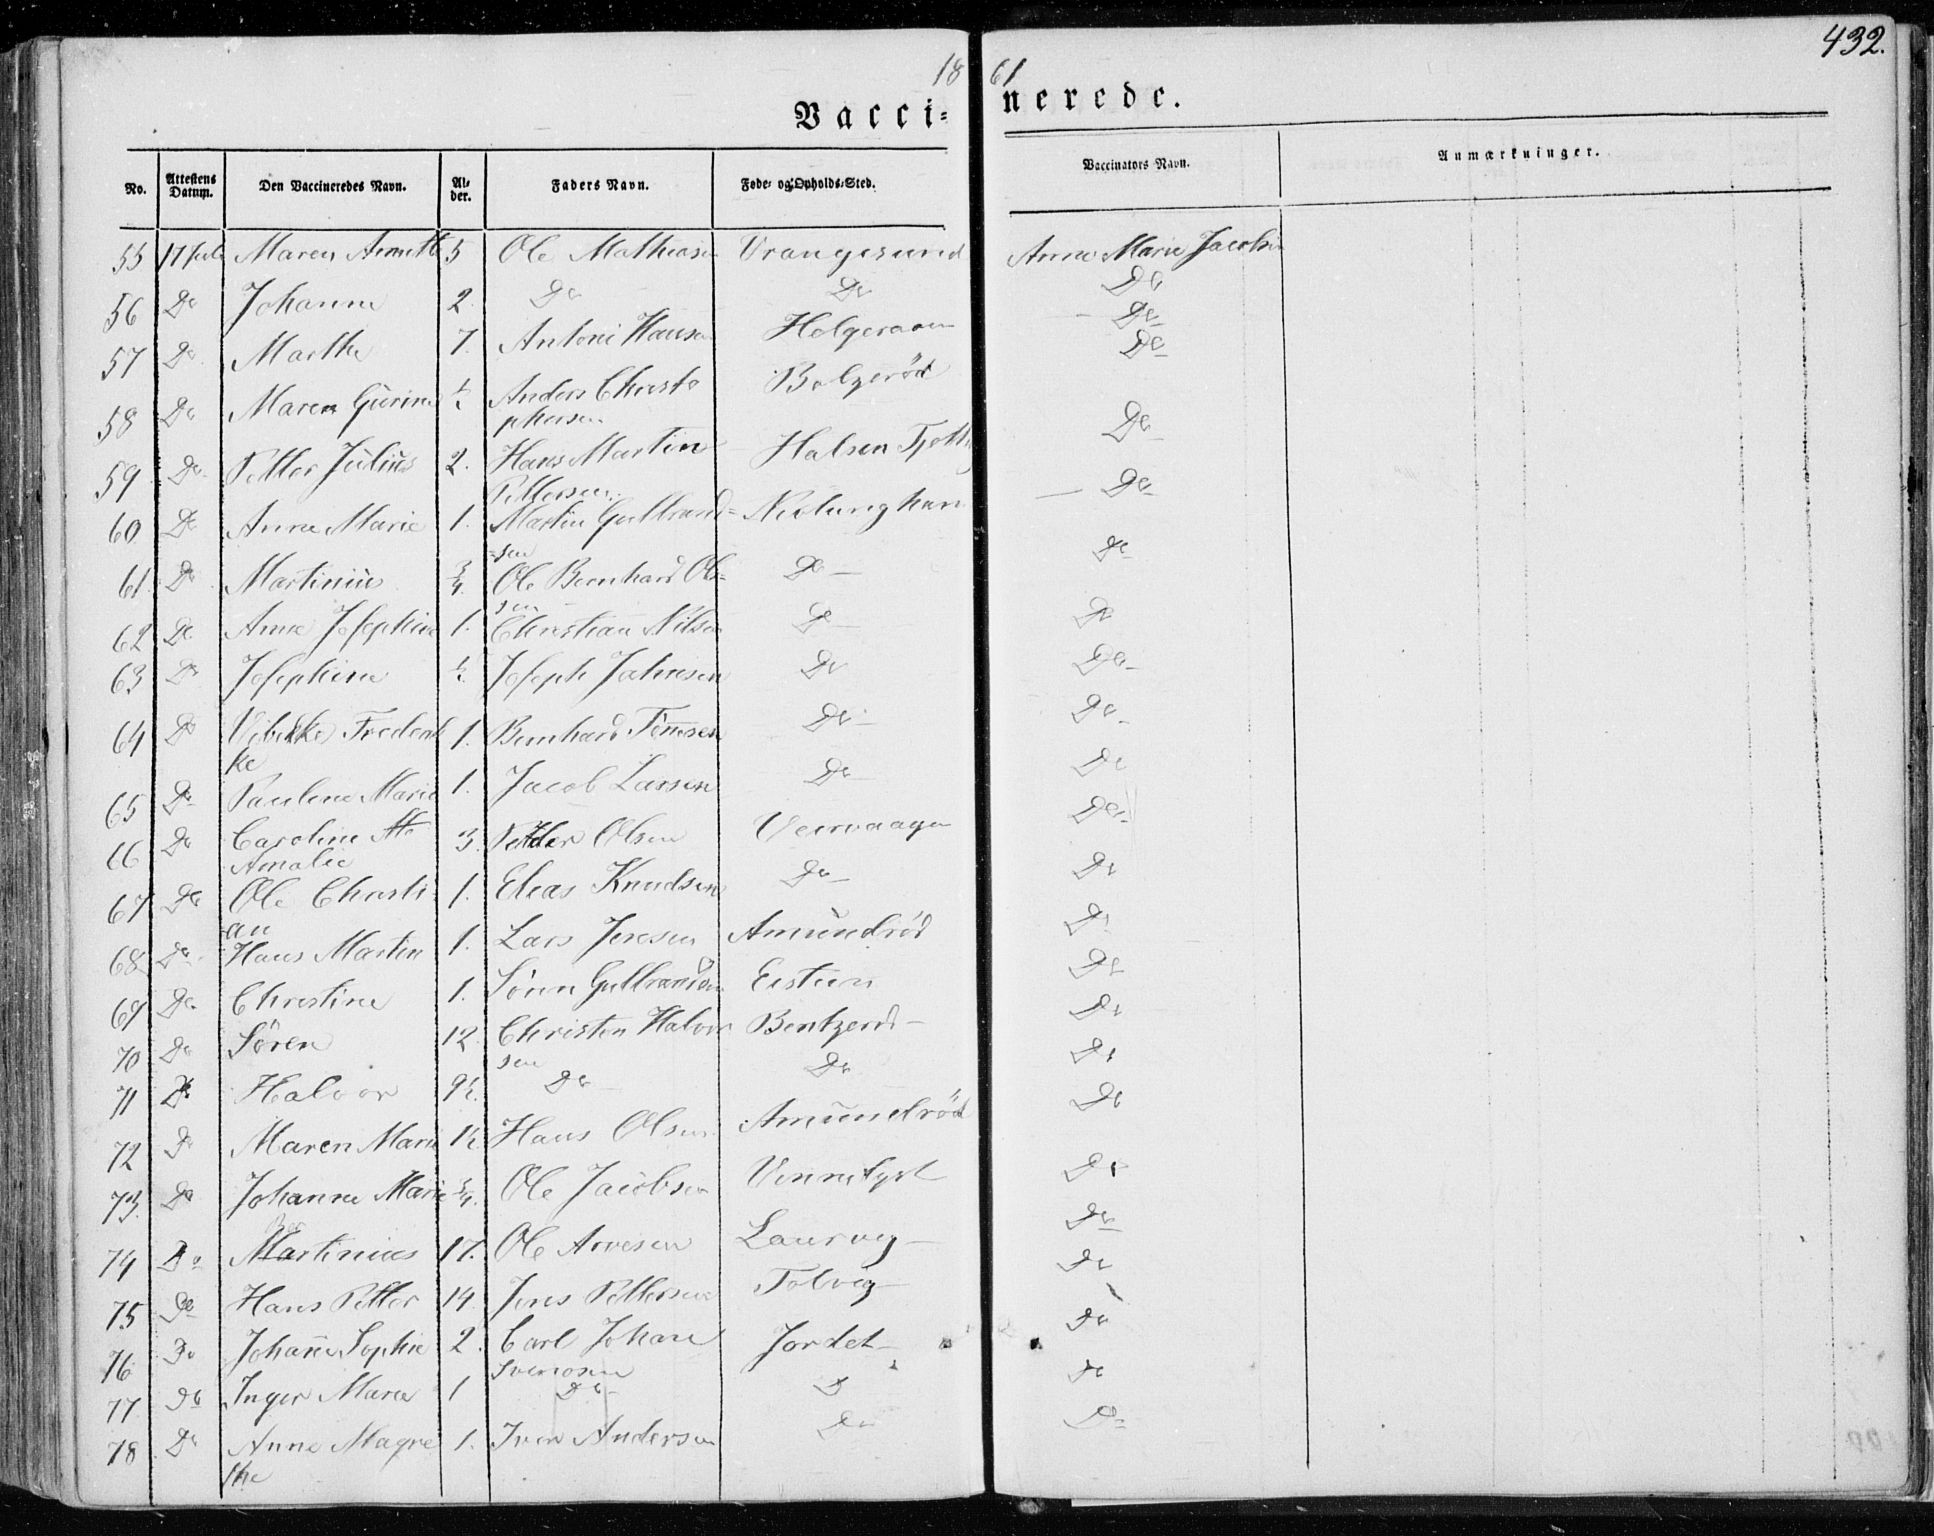 432.
18 61
Vacci- nerede.
No. Attestens Datum. Den Vaccineredes Navn. Al- der. Faders Navn. Føde- og Opholds-Sted. Vaccinators Navn. Anmærkninger.
55 11 Juli Maren Annette 5 Ole Mathiasen Vrangesund Anne Marie Jacobsen
56 Do Johanne 2. Do Do Do
57 Do Marthe 7. Antoni Hansen Helgeraaen Do
58 Do Maren Gurine ½ Anders Christo Bolgeröd Do
phersen
59 Do Petter Julius 2. Hans Martin Halsen Do
Pettersen
60 Do Anne Marie 1. Martin Gulbrand- Nevlunghavn Do
-sen
61 Do Martinius ¾ Ole Bernhard Ol- Do Do
sen
62 Do Anne Josephine 1. Christian Nilsen Do Do
63 Do Josephine ½ Joseph Johnsen Do Do
64 Do Vibekke Frederik 1. Bernhard Do Do
ke
65 Do Pauline Marie 1. Jacob Larsen Do Do
66 Do Caroline 3. Petter Olsen Veervaagen Do
Amalie
67 Do Ole Christi- 1. Elias Knudsen Do Do
an
68 Do Hans Martin 1. Lars Jensen Amundröd Do
69 Do Christine 1. Sören Gulbrandsen Do
70 Do Sören 12 Christen Halvor Bentzerd Do
sen
71 Do Halvor 9½ Do Do Do
72 Do Maren Marie 1½ Hans Olsen Amundröd Do
73. Do Johanne Marie ¾ Ole Jacobsen Do
74 Do Martinius 17. Ole Arvesen Laurvig Do
75 Do Hans Petter 14 Jens Pettersen Tolvig Do
76 Do Johanne Sophie 2. Carl Johan Jordet Do
77 Do Inger Maria 1 Do Do Do
78 Do Anne Magre 1. Iver Andersen Do Do
the